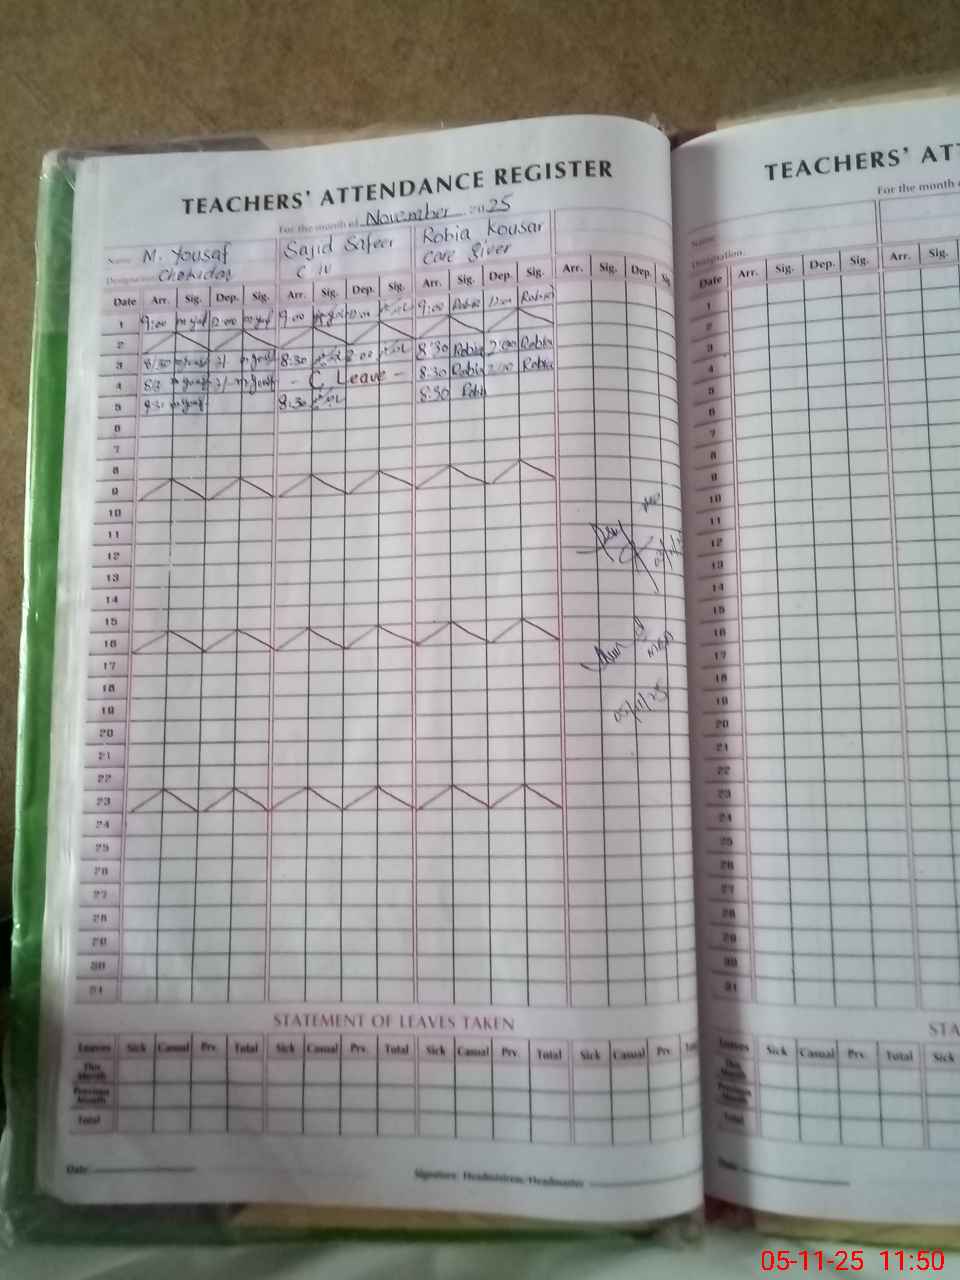 TEACHERS' ATTENDANCE REGISTER
For the month of November 2025
Name M. Yousaf Sajid Safeer Robia Kousar
Designation Chokidar C IV Care giver
Date Arr. Sig. Dep. Sig. Arr. Sig. Dep. Sig. Arr. Sig. Dep. Sig. Arr. Sig. Dep. Sig.
1 9:00 12:00 9:00 9:00 Robia 12:00 Robia
2
3 8:30 8:30 2:00 8:30 Robia 2:00 Robia
4 - C. Leave - 8:30 Robia Robia
5 8:30 8:30 8:30 Robia
6
7
8
9
10
11
12
13
14
15
16
17
18
19
20
21
22
23
24
25
26
27
28
29
30
31
STATEMENT OF LEAVES TAKEN
Leaves Sick Casual Prv. Total Sick Casual Prv. Total Sick Casual Prv. Total Sick Casual Prv.
This Month
Previous Month
Total
Date
Signature: Headmistress/Headmaster
TEACHERS' AT
For the month
Name
Designation.
Date Arr. Sig. Dep. Sig. Arr. Sig.
1
2
3
4
5
6
7
8
9
10
11
12
13
14
15
16
17
18
19
20
21
22
23
24
25
26
27
28
29
30
31
STA
Leaves Sick Casual Prv. Total Sick
This Month
Previous Month
Total
Date
05-11-25 11:50